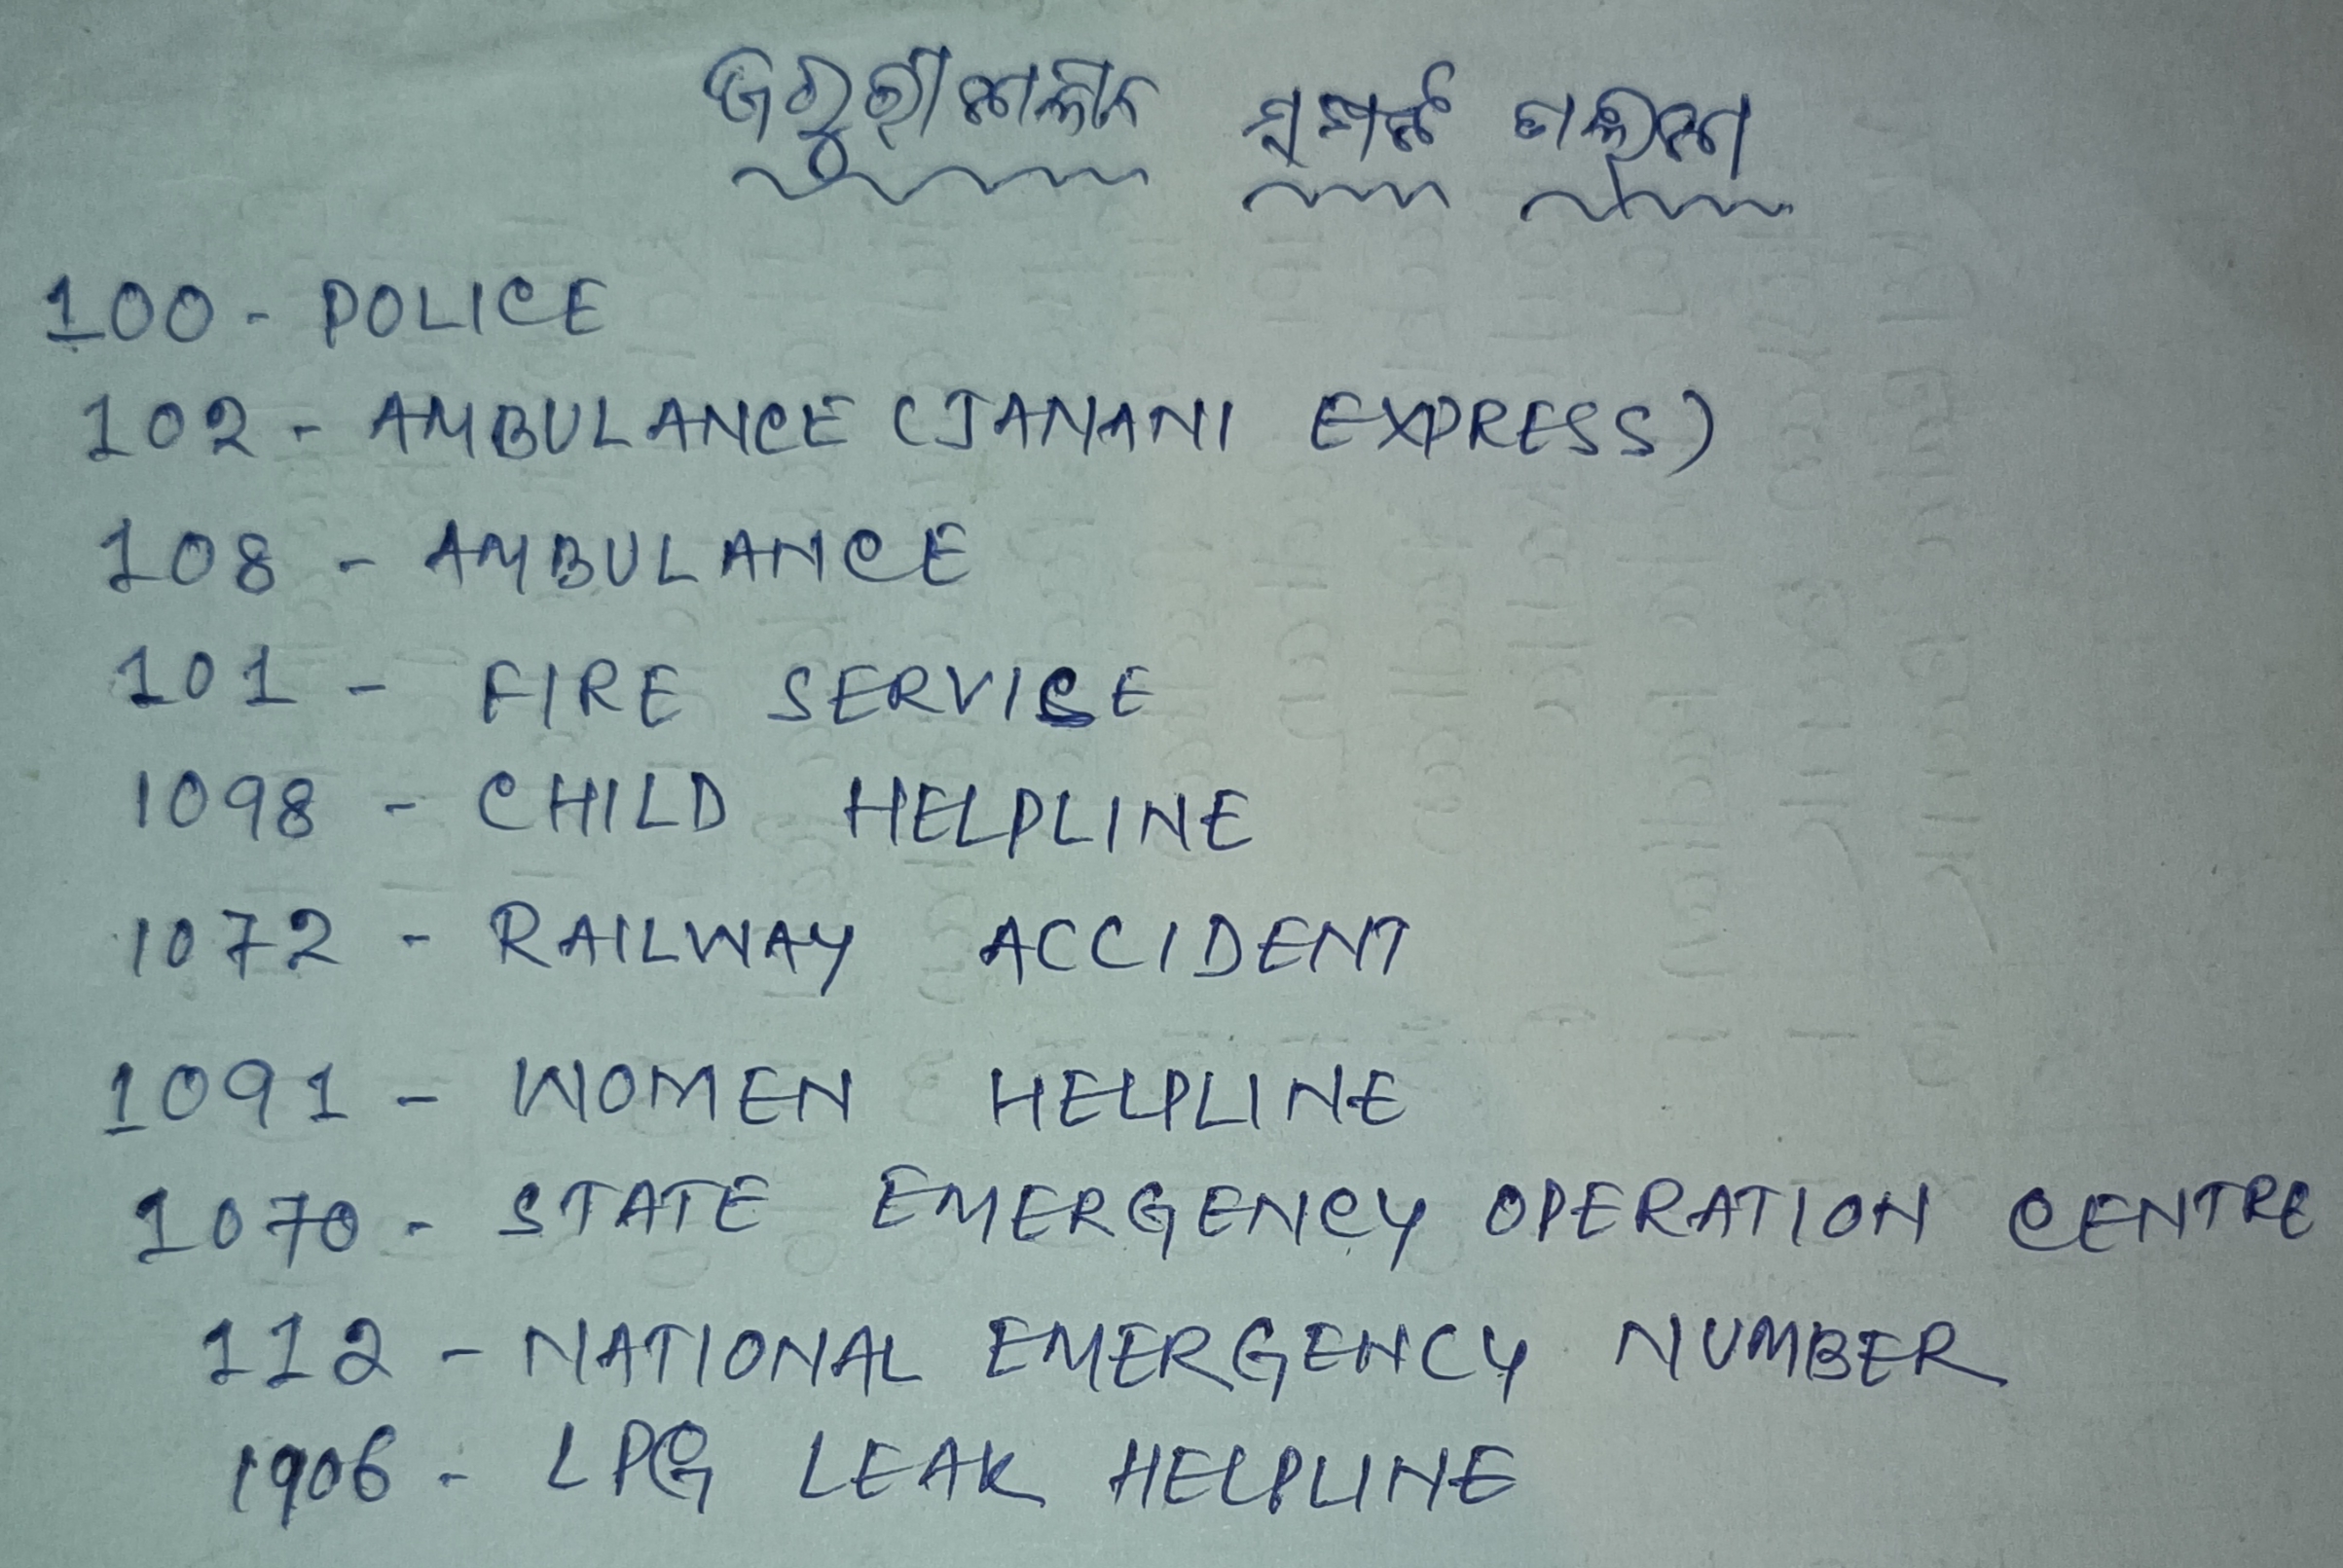 ଜରୁରୀକାଳୀନ ସମ୍ପର୍କ ତାଲିକା
100 - POLICE
102 - AMBULANCE (JANANI EXPRESS)
108 - AMBULANCE
101 - FIRE SERVICE
1098 - CHILD HELPLINE
1072 - RAILWAY ACCIDENT
1091 - WOMEN HELPLINE
1070 - STATE EMERGENCY OPERATION CENTRE
112 - NATIONAL EMERGENCY NUMBER
1906 - LPG LEAK HELPLINE